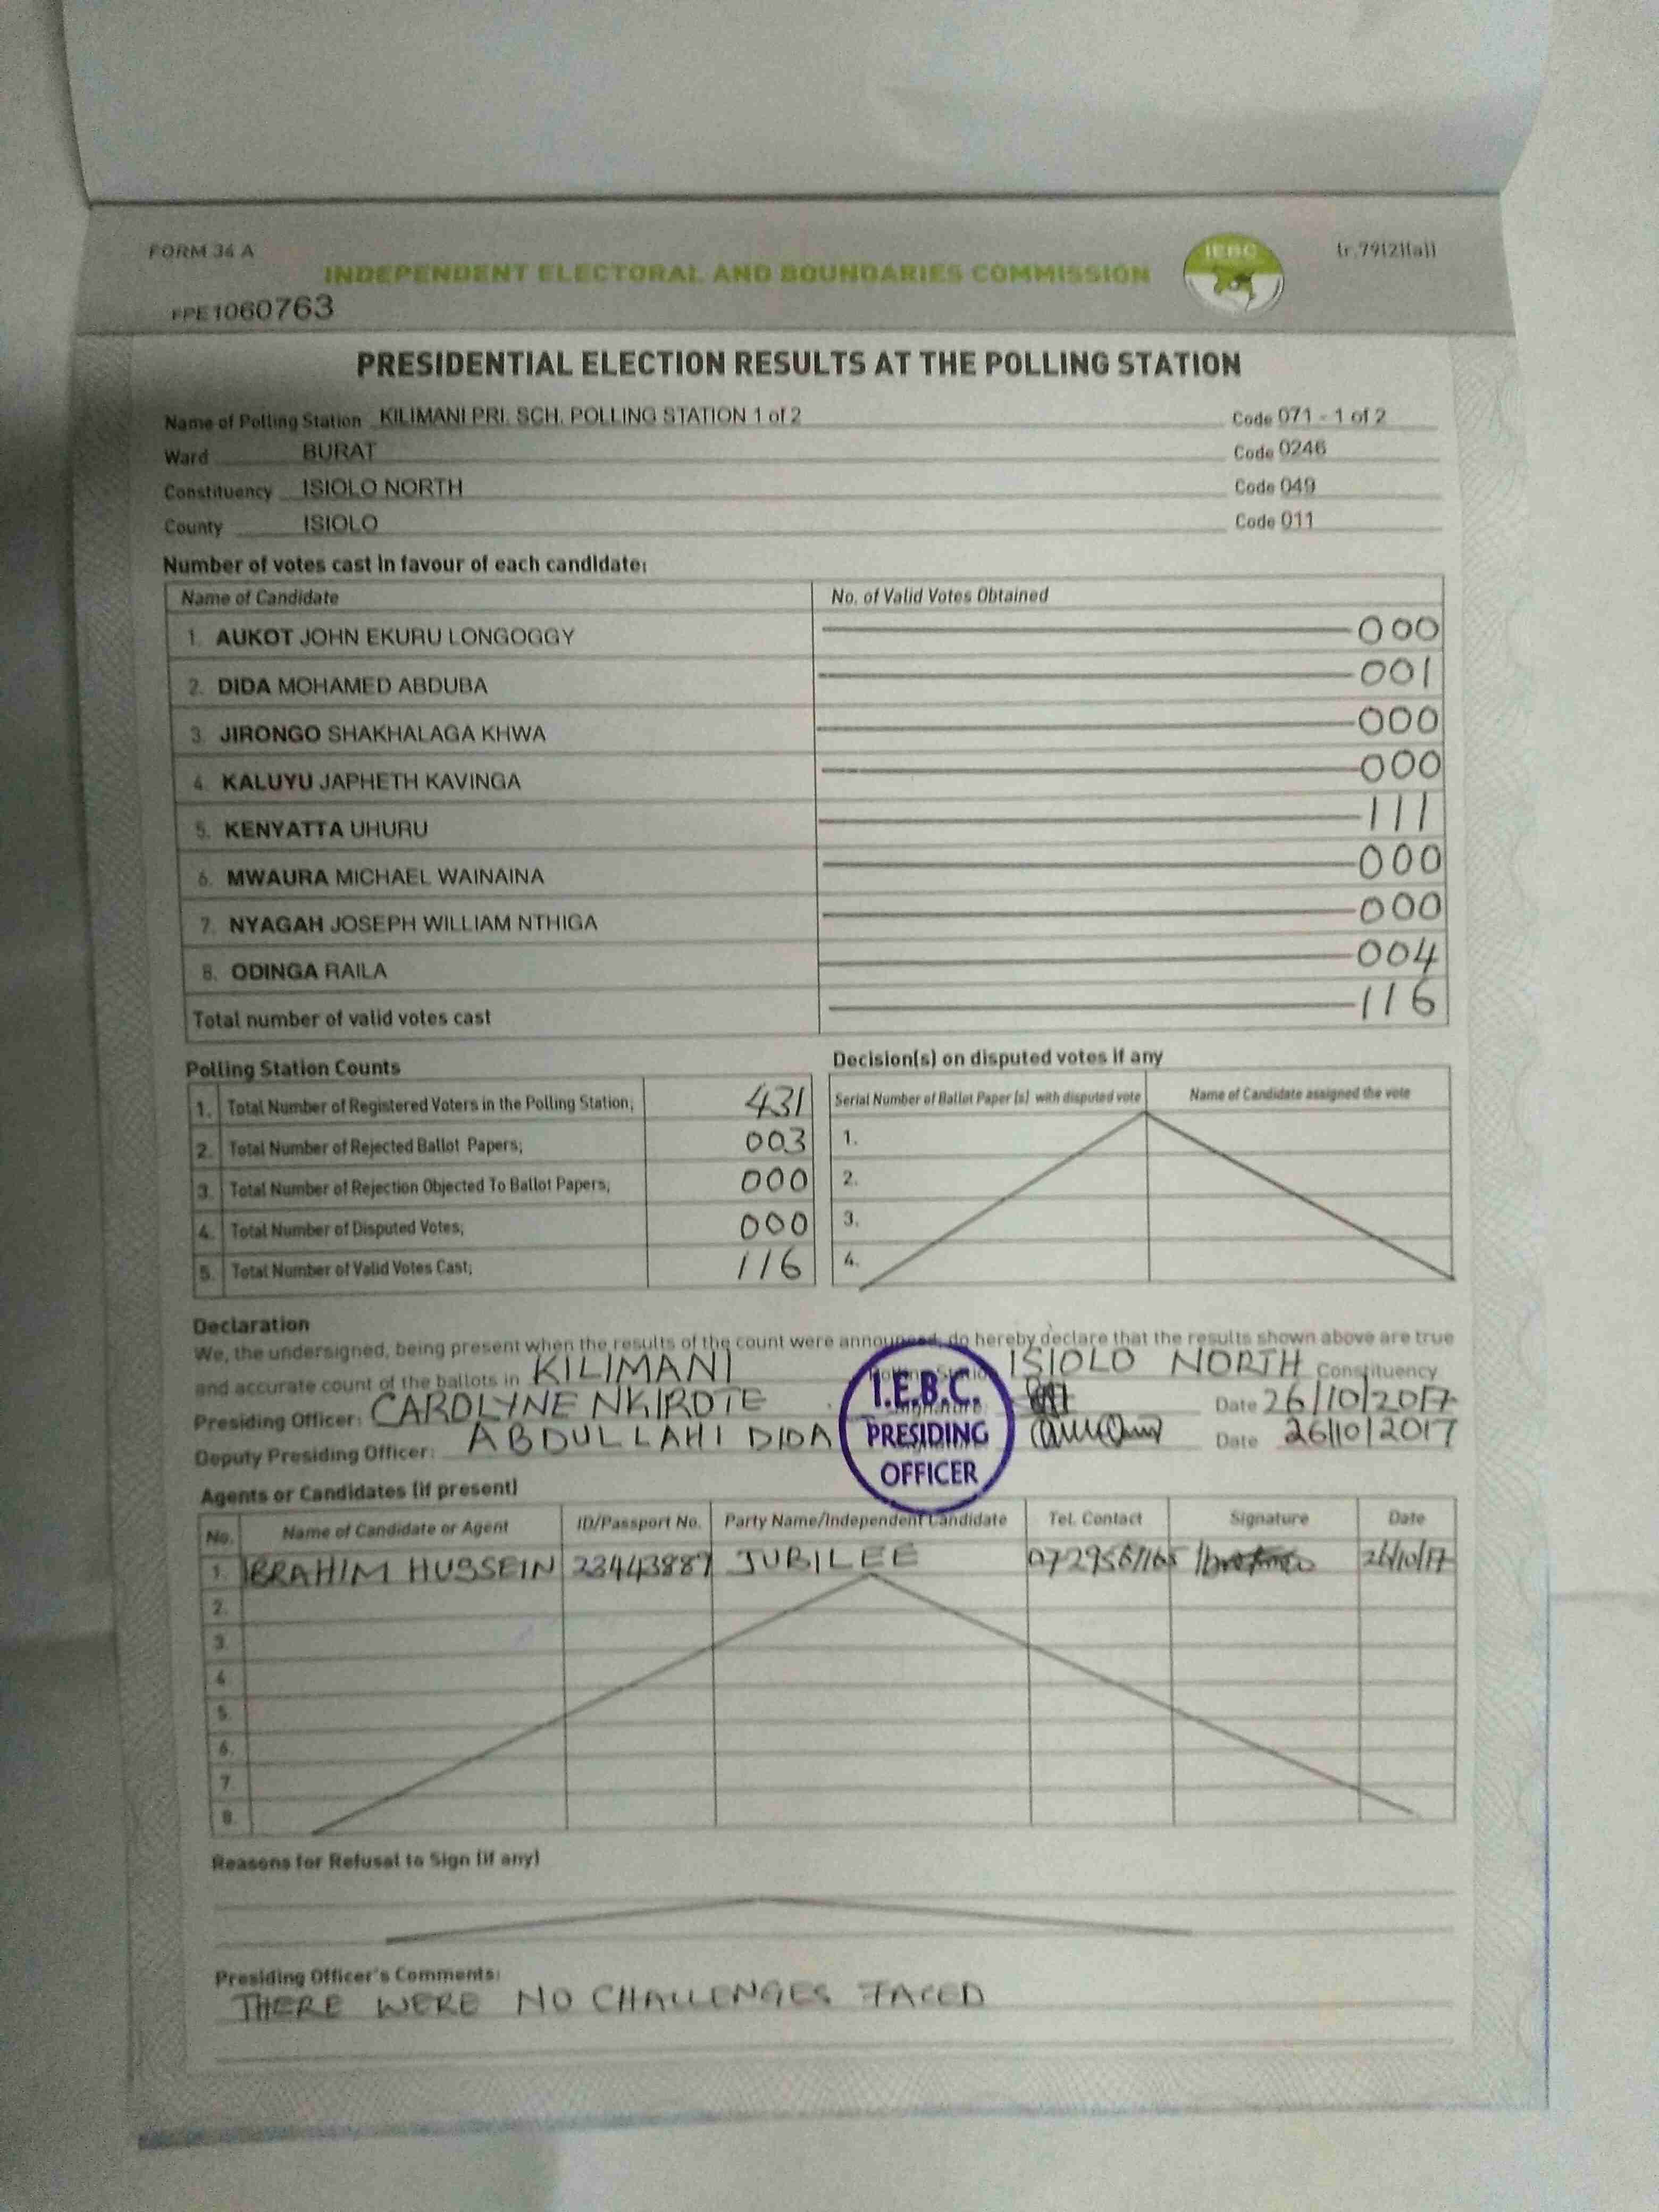 FORM 34 A
IEBC
(r.79(2)(a))
INDEPENDENT ELECTORAL AND BOUNDARIES COMMISSION
FPE1060763
PRESIDENTIAL ELECTION RESULTS AT THE POLLING STATION
Name of Polling Station KILIMANI PRI. SCH. POLLING STATION 1 of 2 Code 071 - 1 of 2
Ward BURAT Code 0246
Constituency ISIOLO NORTH Code 049
County ISIOLO Code 011
Number of votes cast in favour of each candidate:
Name of Candidate No. of Valid Votes Obtained
1. AUKOT JOHN EKURU LONGOGGY 000
2. DIDA MOHAMED ABDUBA 001
3. JIRONGO SHAKHALAGA KHWA 000
4. KALUYU JAPHETH KAVINGA 000
5. KENYATTA UHURU 111
6. MWAURA MICHAEL WAINAINA 000
7. NYAGAH JOSEPH WILLIAM NTHIGA 000
8. ODINGA RAILA 004
Total number of valid votes cast 116
Polling Station Counts
1. Total Number of Registered Voters in the Polling Station; 431
2. Total Number of Rejected Ballot Papers; 003
3. Total Number of Rejection Objected To Ballot Papers; 000
4. Total Number of Disputed Votes; 000
5. Total Number of Valid Votes Cast; 116
Decision(s) on disputed votes if any
Serial Number of Ballot Paper (s) with disputed vote Name of Candidate assigned the vote
1.
2.
3.
4.
Declaration
We, the undersigned, being present when the results of the count were announced, do hereby declare that the results shown above are true
and accurate count of the ballots in KILIMANI ISIOLO NORTH Constituency
Presiding Officer: CAROLYNE NKIROTE Date 26/10/2017
Deputy Presiding Officer: ABDULLAHI DIDA Date 26/10/2017
I.E.B.C.
PRESIDING
OFFICER
Agents or Candidates (if present)
No. Name of Candidate or Agent ID/Passport No. Party Name/Independent Candidate Tel. Contact Signature Date
1. IBRAHIM HUSSEIN 23443887 JUBILEE 26/10/17
2.
3.
4.
5.
6.
7.
8.
Reasons for Refusal to Sign (if any)
Presiding Officer's Comments:
THERE WERE NO CHALLENGES FACED